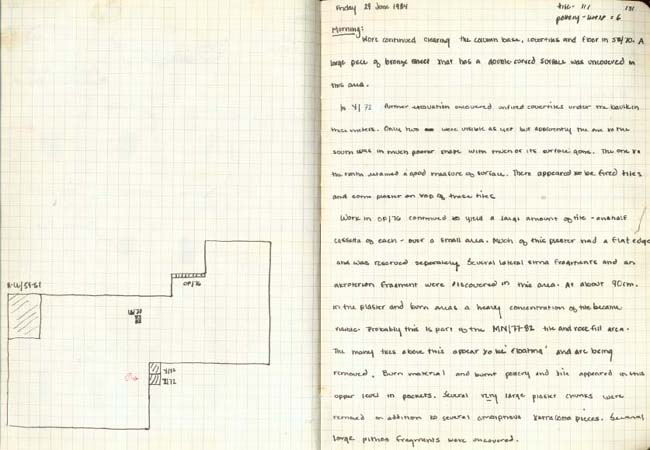 Friday 29 June 1984
tile - 111
131
pottery - 6
Morning:
Work continued clearing the column base, covertiles and floor in 58/70. A
large piece of bronze sheet that has a double-curved surface was uncovered in
this area.
In Y/72 further excavation uncovered unfired covertiles under the baulk in
three meters. Only two were visible as yet but apparently the one to the
south was in much poorer shape with much of its surface gone. The one to
the north retained a good measure of surface. There appeared to be fired tiles
and some plaster on top of these tiles
Work in OP/76 continued to yield a large amount of tile - one half
cassetta of each - over a small area. Much of this plaster had a flat edge
and was reserved separately. Several lateral sima fragments and an
akroterion fragment were discovered in this area. At about 90cm.
in the plaster and burn areas a heavy concentration of tile became
visible. Probably this is part of the MN/77-82 tile and rock fill area.
The many tiles above this appear to be 'floating' and are being
removed. Burn material and burnt pottery and tile appeared in this
upper level in pockets. Several very large plaster chunks were
removed in addition to several amorphous terracotta pieces. Several
large pithos fragments were uncovered.
OP/76